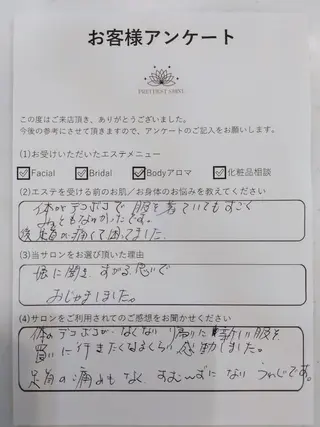 お客様アンケート
この度はご来店頂き、ありがとうございました。
今後の参考にさせて頂きますので、アンケートのご記入をお願いします。
(1)お受けいただいたエステメニュー
Facial Bridal Bodyアロマ 化粧品相談
(2)エステを受ける前のお肌／お身体のお悩みを教えてください
体がデコボコで服を着ていてもすごく
みっともなかったです。
痛くて困ってました
(3)当サロンをお選び頂いた理由
娘に聞き すがる思いで
おじゃましました。
(4)サロンをご利用されてのご感想をお聞かせください
体のデコボコがなくなり 新しい服を
買いに行きたくなるくらい感動しました。
の痛みもなく